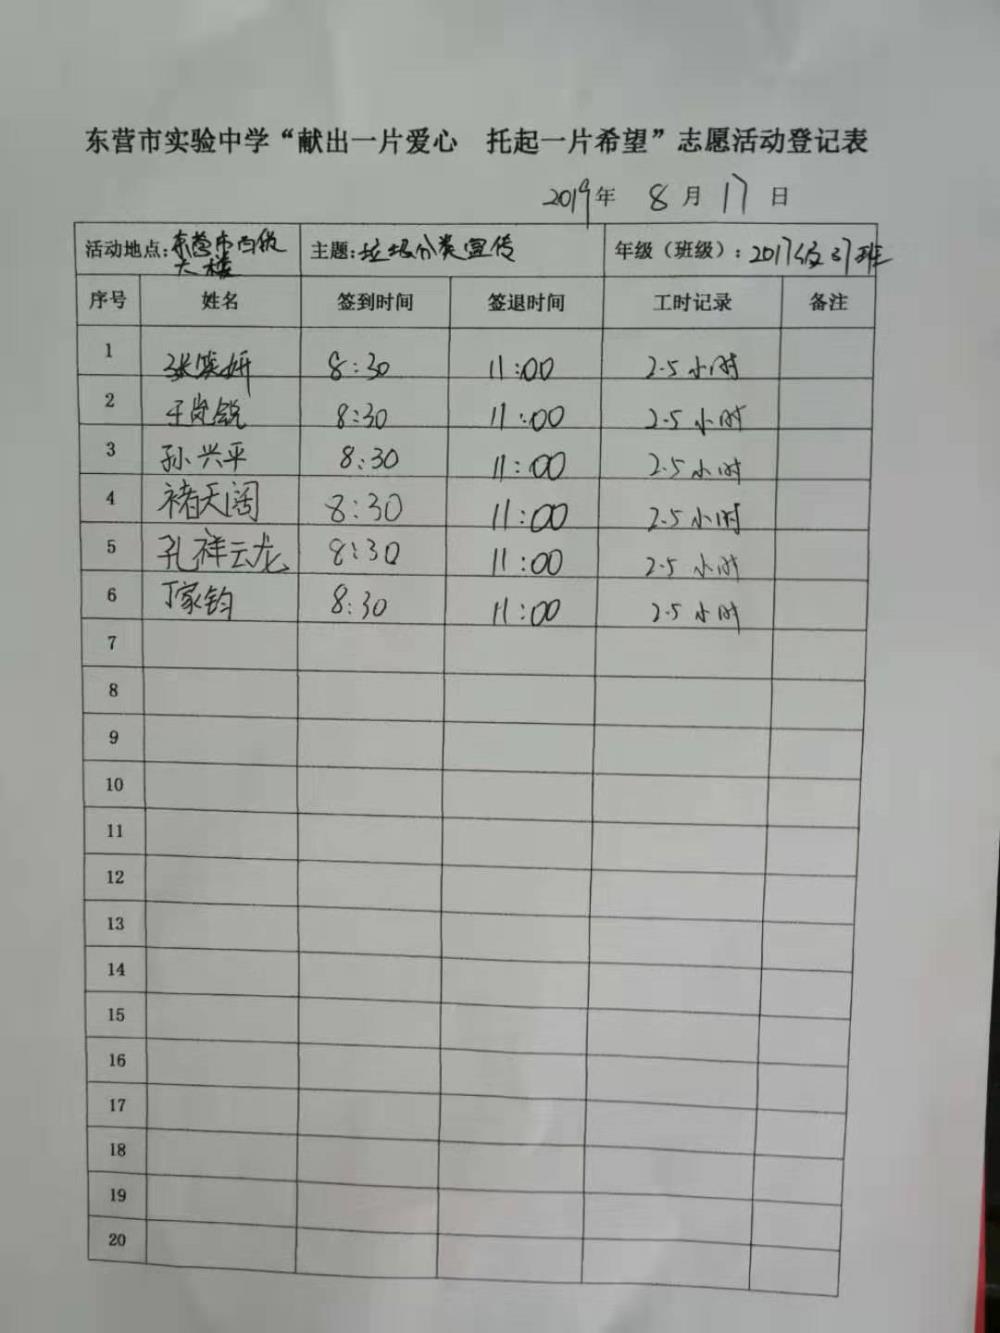 东营市实验中学“献出一片爱心 托起一片希望”志愿活动登记表
2019年 8月 17日
活动地点:东营市百货大楼 主题:垃圾分类宣传 年级（班级）:2017级37班
序号 姓名 签到时间 签退时间 工时记录 备注
1 张 妍 8:30 11:00 2.5小时
2 王岚锐 8:30 11:00 2.5小时
3 孙兴平 8:30 11:00 2.5小时
4 褚天阔 8:30 11:00 2.5小时
5 孔祥云龙 8:30 11:00 2.5小时
6 丁家钧 8:30 11:00 2.5小时
7
8
9
10
11
12
13
14
15
16
17
18
19
20